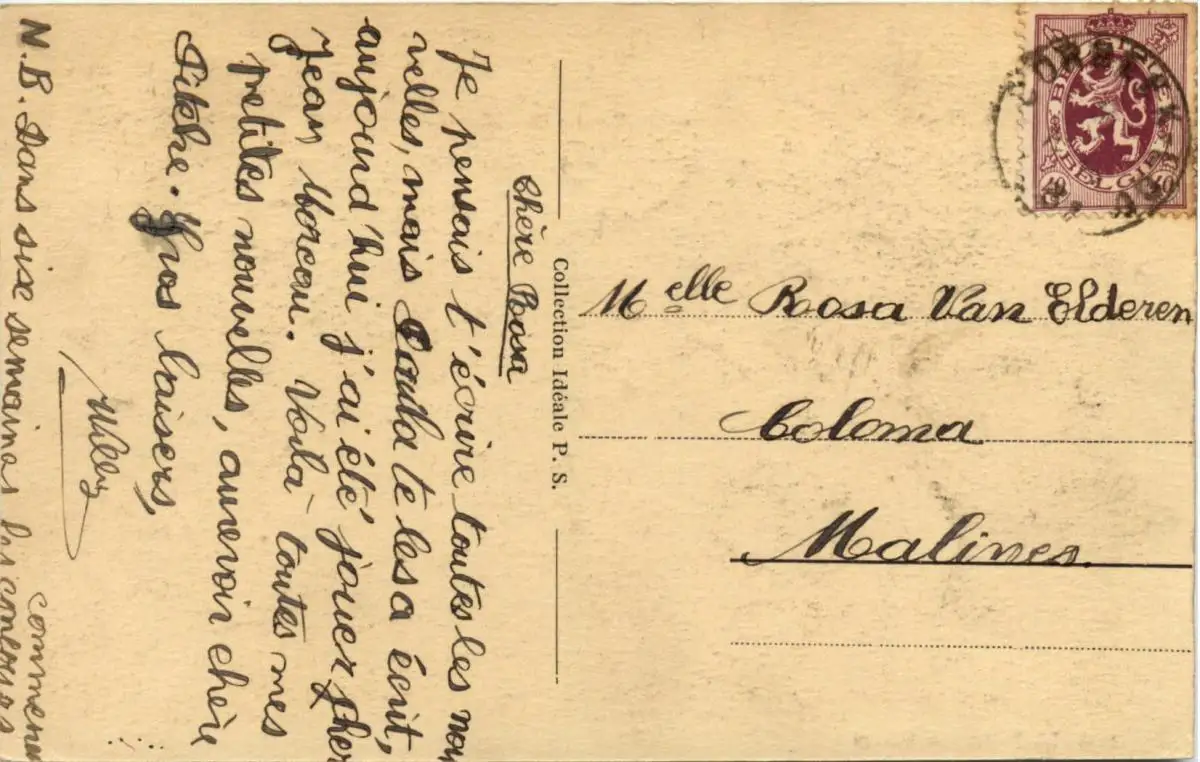 Chère Rosa
Je pensais t'écrire toutes les nou
velles, mais Paula te les a écrit,
aujourd'hui j'ai été jouer chez
Jean Morcou. Voilà toutes mes
petites nouvelles, aurevoir chère
Gros baisers,
Willy
N.B. Dans sixe semaines les
commence
Collection Idéale P. S.
Melle Rosa Van Elderen
Coloma
Malines.
BELGIE
BELGIQUE
40 40